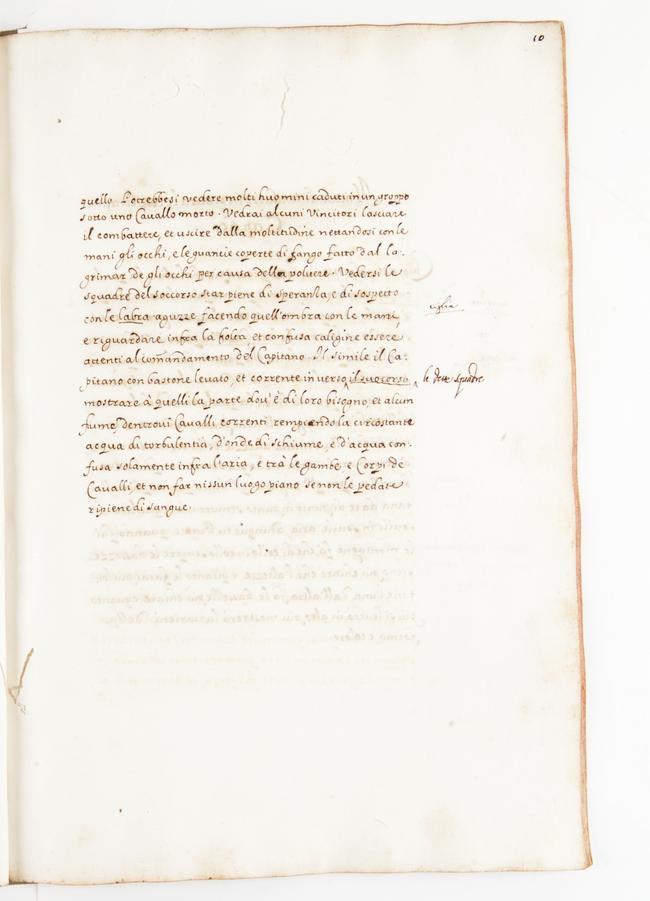 10
quello. Potrebbesi vedere molti huomini caduti in un groppo
sotto uno Cavallo morto. Vedrai alcuni Vincitori lasciare
il combattere, et uscire dalla moltitudine nettandosi con le
mani gli occhi, e le guancie coperte di fango fatto dal la-
grimar de gli occhi per causa della poluere. Vedersi le
squadre del soccorso star piene di speranza e di sospetto
con le labra aguzze facendo quell'ombra con le mani,
ciglia
e riguardare infra la folta, et confusa caligine essere
attenti al comandamento del Capitano. Il simile il Ca-
pitano con bastone levato, et corrente inverso il succorso
le dette squadre
mostrare à quelli la parte dov'è di loro bisogno, et alcun
fiume, dentrovi Cavalli correnti rempiendo la circostante
acqua di torbulentia, d'onde di schiume, e d'acqua con-
fusa solamente infra l'aria, e trà le gambe, e Corpi de
Cavalli, et non far nissun luogo piano se non le pedate
ripiene di sangue.